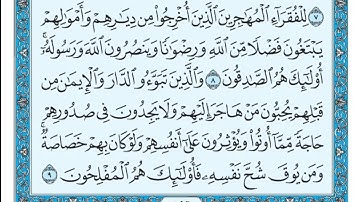 ٧ لِلْفُقَرَآءِ ٱلْمُهَـٰجِرِينَ ٱلَّذِينَ أُخْرِجُوا۟ مِن دِيَـٰرِهِمْ وَأَمْوَٰلِهِمْ
يَبْتَغُونَ فَضْلًا مِّنَ ٱللَّهِ وَرِضْوَٰنًا وَيَنصُرُونَ ٱللَّهَ وَرَسُولَهُۥٓ ۚ
أُو۟لَـٰٓئِكَ هُمُ ٱلصَّـٰدِقُونَ ٨ وَٱلَّذِينَ تَبَوَّءُو ٱلدَّارَ وَٱلْإِيمَـٰنَ مِن
قَبْلِهِمْ يُحِبُّونَ مَنْ هَاجَرَ إِلَيْهِمْ وَلَا يَجِدُونَ فِى صُدُورِهِمْ
حَاجَةً مِّمَّآ أُوتُوا۟ وَيُؤْثِرُونَ عَلَىٰٓ أَنفُسِهِمْ وَلَوْ كَانَ بِهِمْ خَصَاصَةٌ ۚ
وَمَن يُوقَ شُحَّ نَفْسِهِۦ فَأُو۟لَـٰٓئِكَ هُمُ ٱلْمُفْلِحُونَ ٩